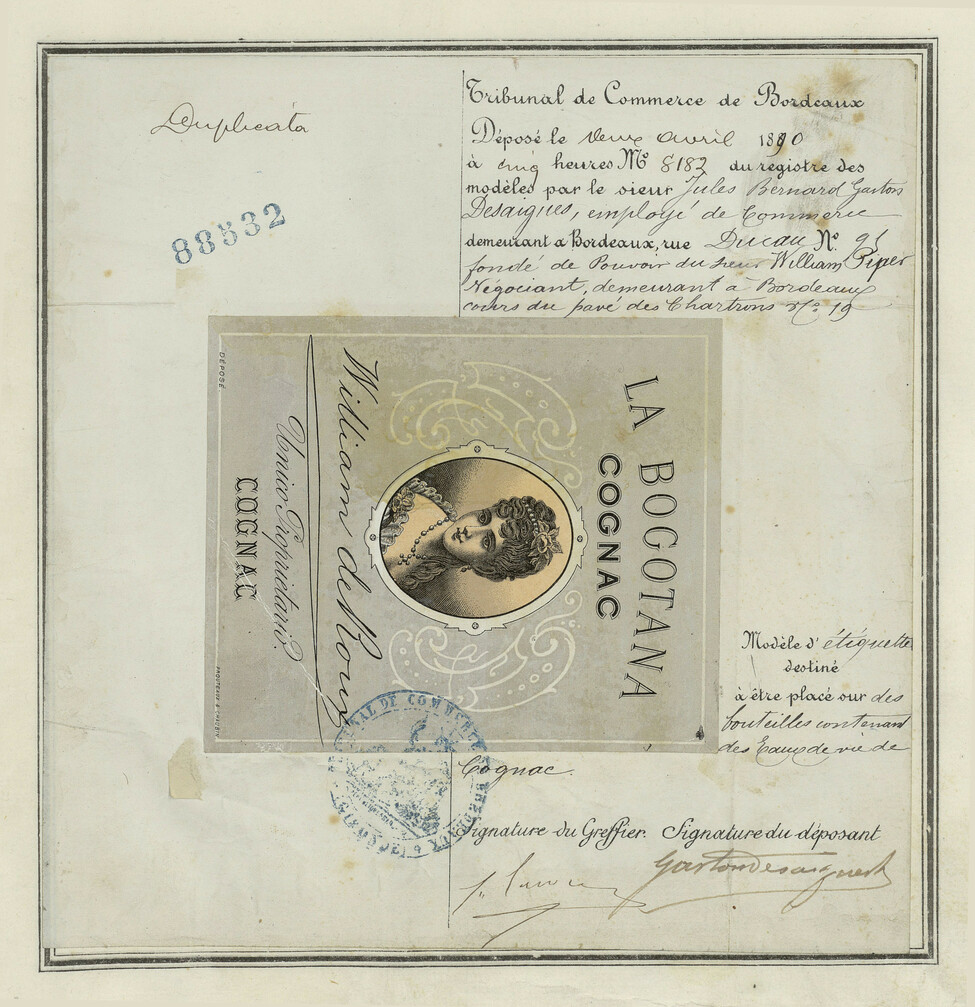 Duplicata
88532
Tribunal de Commerce de Bordeaux
Déposé le deux avril 1890
à cinq heures No 8182 du registre des
modèles par le sieur Jules Bernard Gaston
Desaigues, employé de Commerce
demeurant a Bordeaux, rue Ducau No. 91
fondé de Pouvoir du sieur William Piper
Négociant, demeurant à Bordeaux
cours du pavé des Chartrons No. 19
LA BOGOTANA
COGNAC
William de
Unico Proprietario.
COGNAC
DÉPOSÉ
Modèle d'étiquette
destiné
à être placé sur des
bouteilles contenant
des Eaux de vie de
Cognac.
TRIBUNAL DE COMMERCE DE BORDEAUX
Signature du Greffier. Signature du déposant